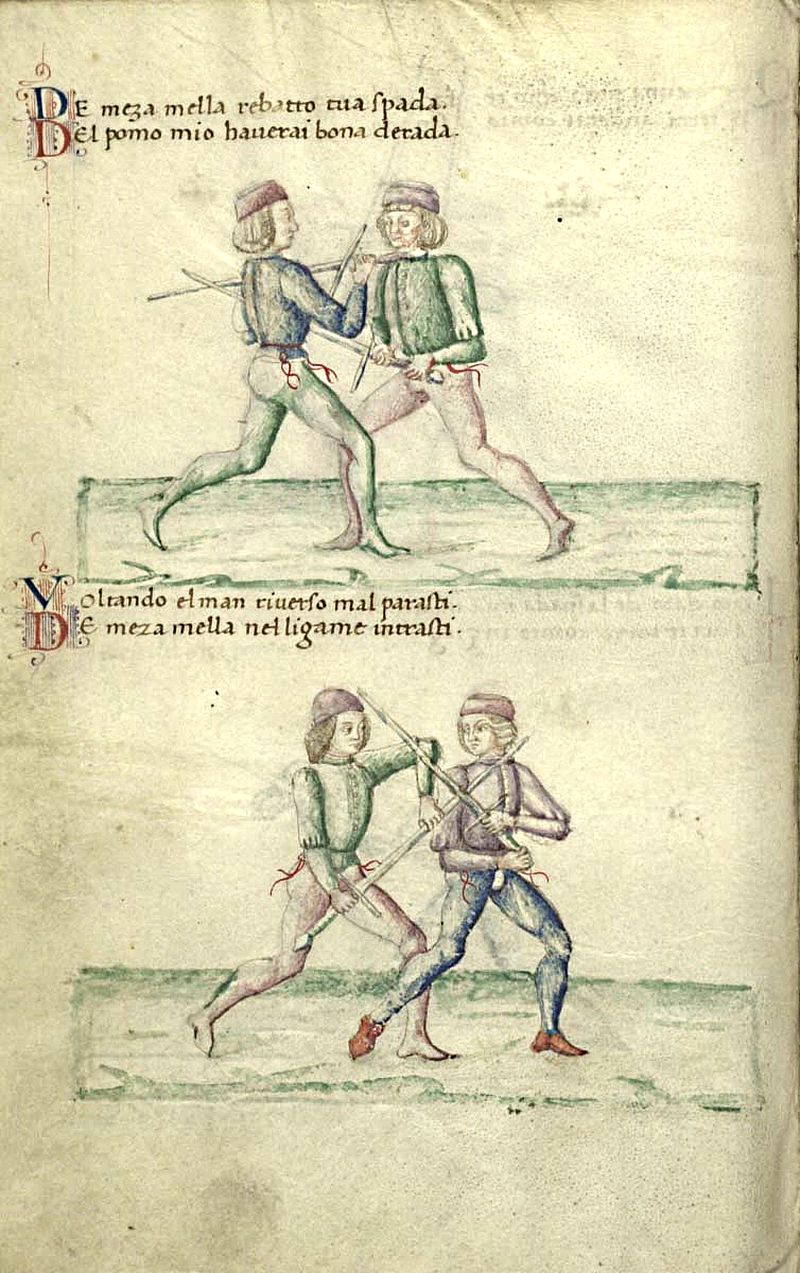 DE meza mella rebatto tua spada.
DEl pomo mio hauerai bona derada.
Voltando el man riuerso mal parasti.
DE meza mella nel ligame intrasti.